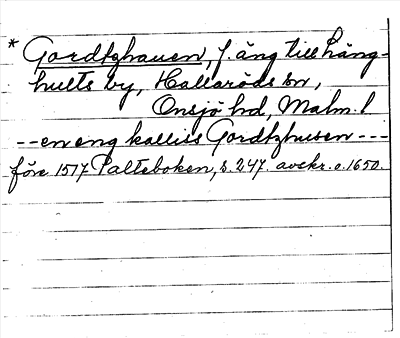 * Gordtzhauen, f. äng till Häng-
hults by, Hallaröds sn,
Onsjö hd, Malm. l
-- en eng kalliss Gordtzhusen ---
före 1517 Palteboken, s. 247. avskr. o. 1650.